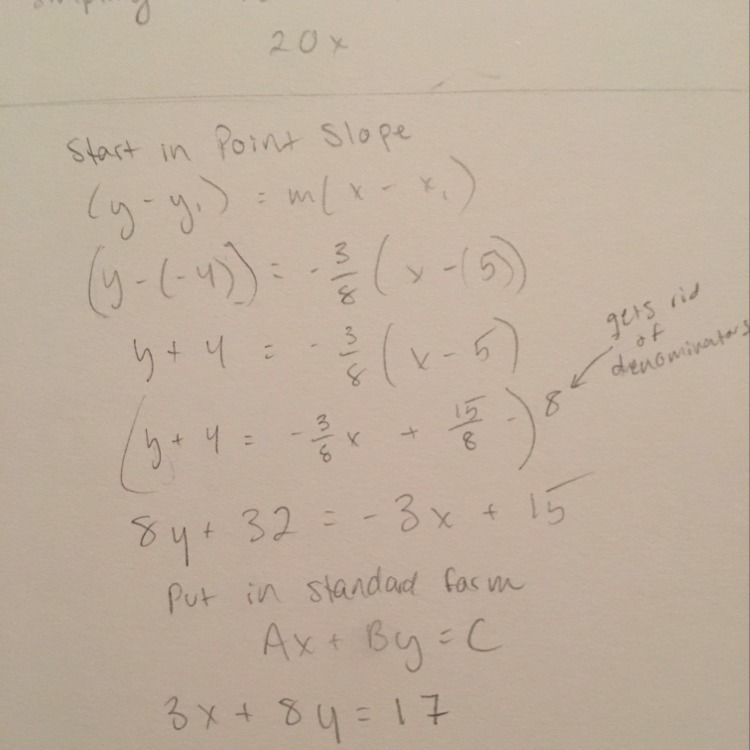 20x
Start in Point Slope
(y - y₁) = m(x - x₁)
(y - (-4)) = -3/8 (x - (5))
y + 4 = -3/8 (x - 5)
gets rid
of
denominators
(y + 4 = -3/8 x + 15/8) 8
8y + 32 = -3x + 15
Put in standard form
Ax + By = C
3x + 8y = 17